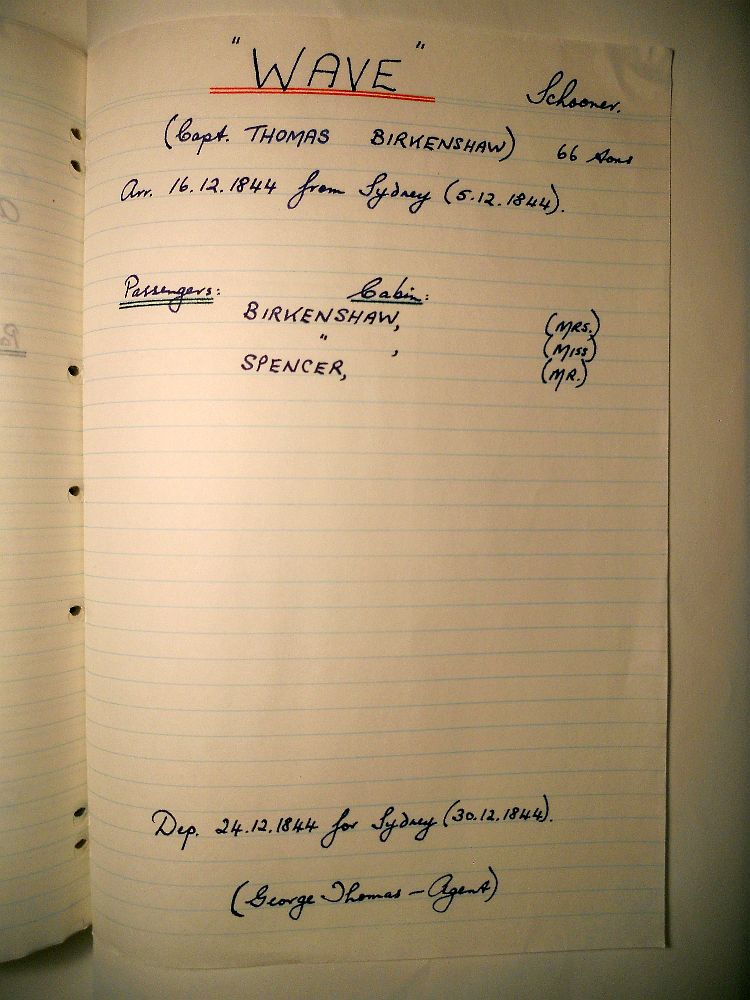 "WAVE"
Schooner.
(Capt. THOMAS BIRKENSHAW) 66 tons
Arr. 16.12.1844 from Sydney (5.12.1844).
Passengers: Cabin:
BIRKENSHAW, (MRS.)
" , (MISS)
SPENCER, (MR.)
Dep. 24.12.1844 for Sydney (30.12.1844).
(George Thomas – Agent)